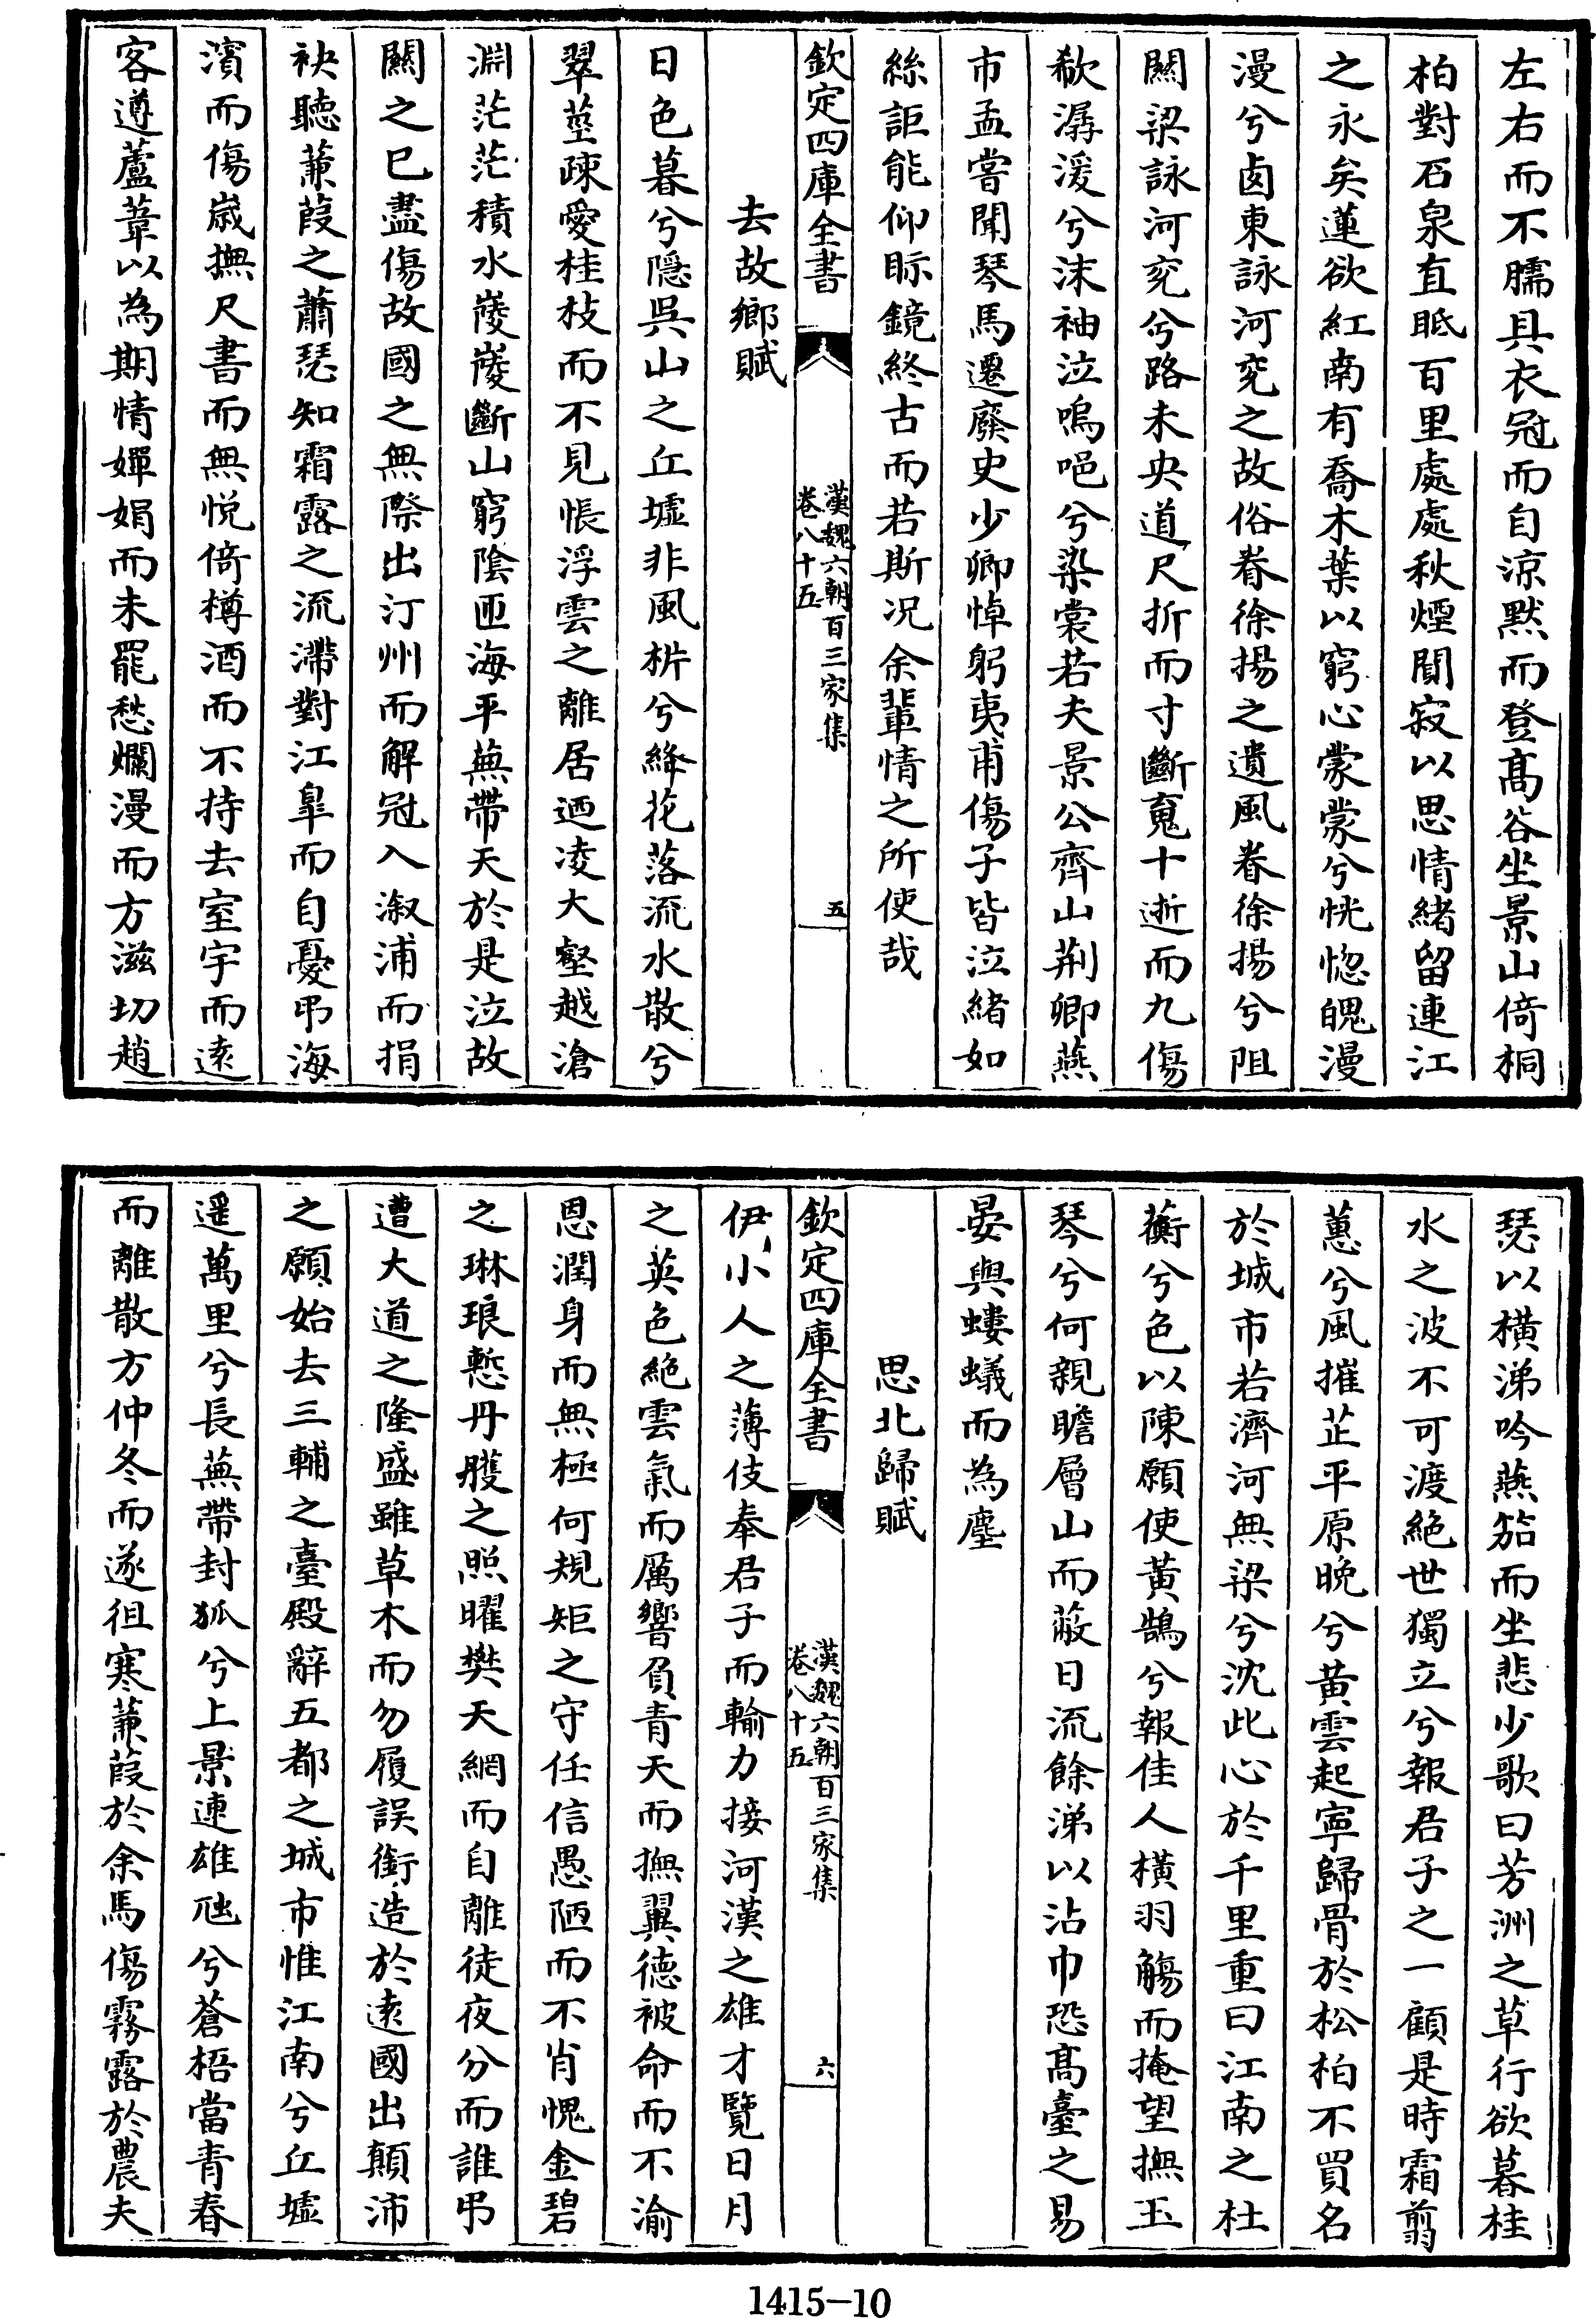 左右而不臑具衣冠而自涼默而登髙谷坐景山倚桐
柏對石泉直眡百里處處秋煙閴寂以思情緒留連江
之永矣蓮欲紅南有喬木葉以窮心蒙蒙兮恍惚魄漫
漫兮鹵東詠河兖之故俗眷徐揚之遺風眷徐揚兮阻
闗梁詠河兖兮路未央道尺折而寸斷䰟十逝而九傷
欷潺湲兮沫袖泣嗚唈兮染裳若夫景公齊山荆卿燕
市孟嘗聞琴馬遷廢史少卿悼躬夷甫傷子皆泣緒如
絲詎能仰眎鏡終古而若斯况余輩情之所使哉
欽定四庫全書
漢魏六朝百三家集
卷八十五
五
去故鄉賦
日色暮兮隱吳山之丘墟非風㭊兮絳花落流水散兮
翠莖疎愛桂枝而不見悵浮雲之離居迺凌大壑越滄
淵茫茫積水崚崚斷山窮陰匝海平蕪帶天於是泣故
闗之已盡傷故國之無際出汀州而解冠入溆浦而捐
袂聽蒹葭之蕭瑟知霜露之流滯對江皐而自憂弔海
濱而傷歳撫尺書而無悦倚樽酒而不持去室宇而逺
客遵蘆葦以為期情嬋娟而未罷愁爛漫而方滋切趙
瑟以横涕吟燕笳而坐悲少歌曰芳洲之草行欲暮桂
水之波不可渡絶世獨立兮報君子之一顧是時霜翦
蕙兮風摧芷平原晚兮黄雲起寜歸骨於松柏不買名
於城市若濟河無梁兮沈此心於千里重曰江南之杜
蘅兮色以陳願使黄鵠兮報佳人横羽觴而掩望撫玉
琴兮何親瞻層山而蔽日流餘涕以沾巾恐髙臺之易
晏與螻蟻而為塵
思北歸賦
欽定四庫全書
漢魏六朝百三家集
卷八十五
六
伊小人之薄伎奉君子而輸力接河漢之雄才覽日月
之英色絶雲氣而厲響負青天而撫翼徳被命而不渝
恩潤身而無極何規矩之守任信愚陋而不肖愧金碧
之琳琅慙丹雘之照曜樊天網而自離徒夜分而誰弔
遭大道之隆盛雖草木而勿履誤銜造於逺國出顛沛
之願始去三輔之臺殿辭五都之城市惟江南兮丘墟
遥萬里兮長蕪帶封狐兮上景連雄虺兮蒼梧當青春
而離散方仲冬而遂徂寒蒹葭於余馬傷霧露於農夫
1415—10